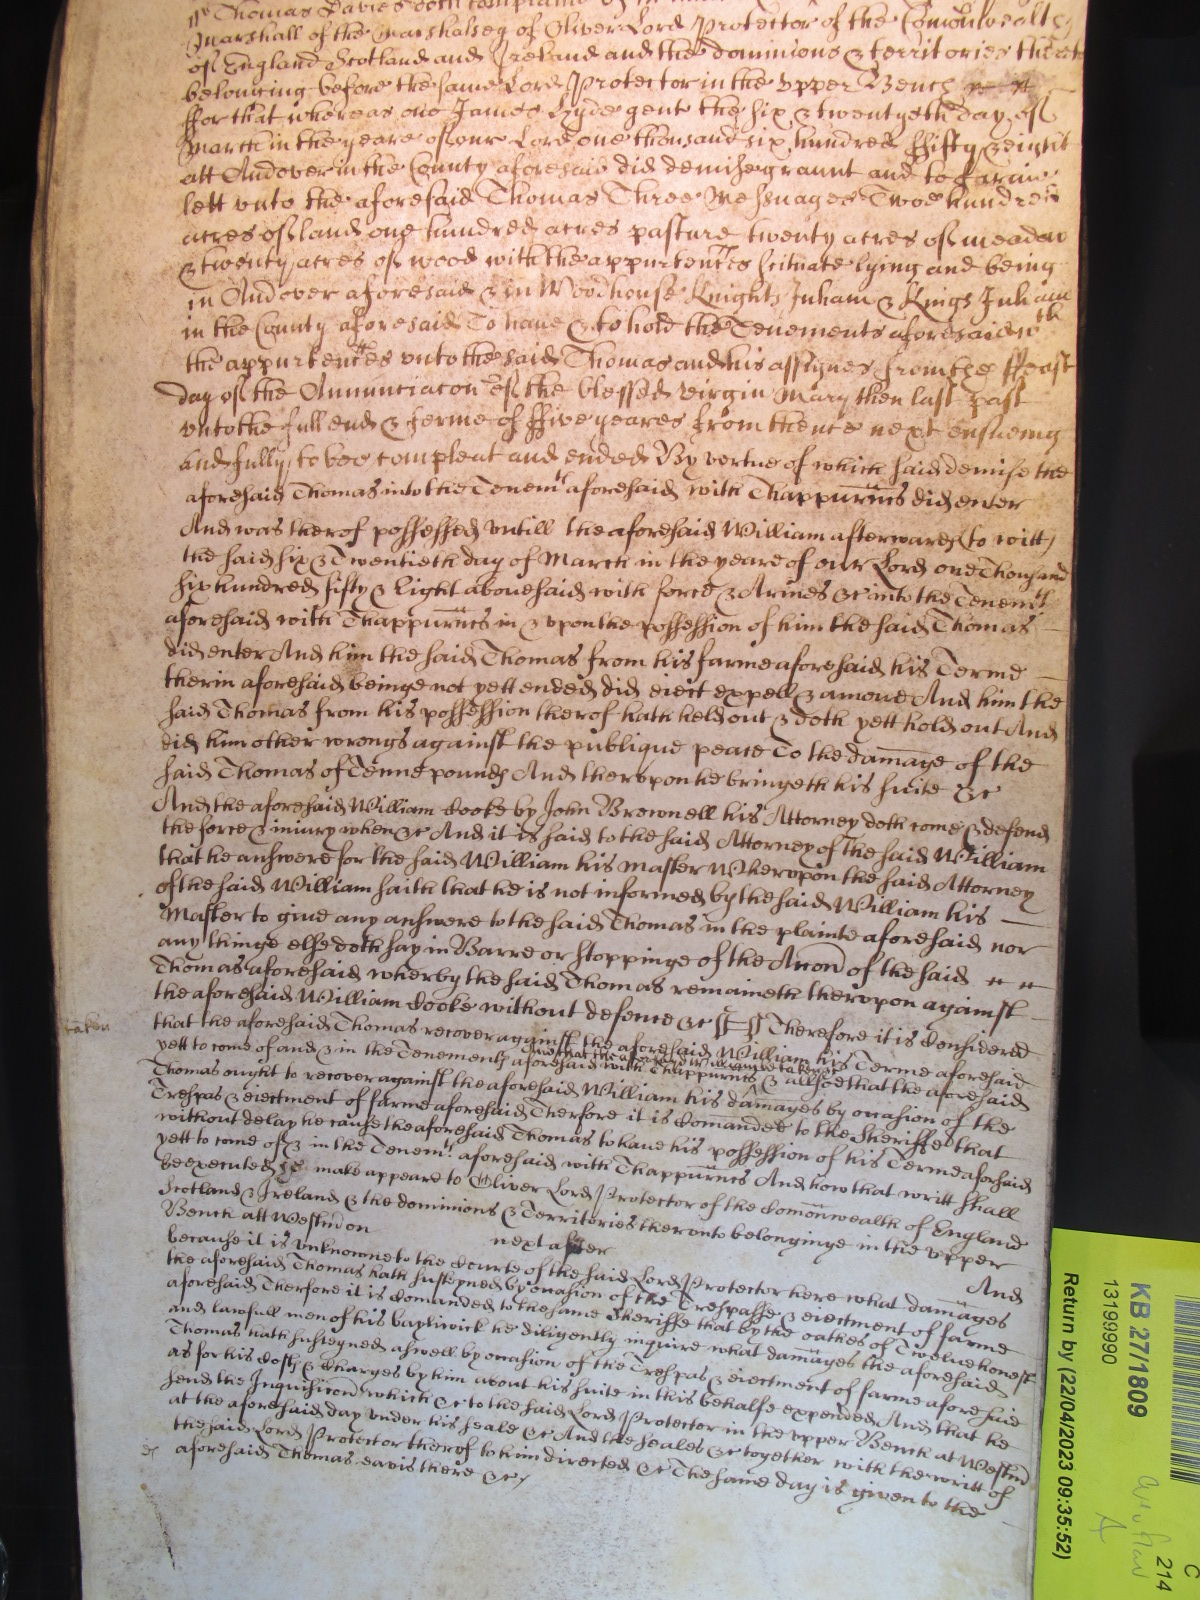 Thomas Davies doth complaine
Marshall of the Marshalsey of Oliver Lord Protector of the Comonwealth
of England Scotland and Ireland and the dominions & territories
belonging before the same Lord Protector in the vpper Bench
ffor that whereas one James Hyde gent the six & twentyeth day of
March in the yeare of our Lord one thousand six hundred ffifty & eight
att Andover in the County aforesaid did demise graunt and to farme
lett vnto the aforesaid Thomas Three Messuages Twoe hundred
acres of land one hundred acres pasture twenty acres of meadow
& twenty acres of wood with the appurtenñces scituate lying and being
in Andover aforesaid & in Woodhouse Knights Inham & Kings Inham
in the County aforesaid To haue & to hold the Tenements aforesaid wth
the appurtenñces vnto the said Thomas and his assignes from the ffeast
day of the Annunciacon of the blessed virgin Mary then last past
vnto the full end & terme of ffive yeares from thence next ensueing
and fully to bee compleat and ended By vertue of which said demise the
aforesaid Thomas into the Tenemts aforesaid with Thappurtñncs did enter
And was therof possessed vntill the aforesaid William afterwards (to witt)
the said six & Twentieth day of March in the yeare of our Lord one Thousand
six hundred fifty & Eight abouesaid with force & Armes &c into the Tenemts
aforesaid with Thappurñncs in & vpon the possession of him the said Thomas
did enter And him the said Thomas from his farme aforesaid his Terme
therin aforesaid beinge not yett ended did eiect expell & amoue And him the
said Thomas from his possession therof hath held out & doth yett hold out And
did him other wrongs against the publique peace To the damage of the
said Thomas of Tenne pounds And thervpon he bringeth his suite &c
And the aforesaid William Cooke by John Brewnell his Attorney doth come & defend
the force & iniury when &c And it is said to the said Attorney of the said William
that he answere for the said William his Master Whervpon the said Attorney
of the said William saith that he is not informed by the said William his
Master to giue any answere to the said Thomas in the plainte aforesaid nor
any thinge else doth say in Barre or stoppinge of the Accon of the said
Thomas aforesaid wherby the said Thomas remaineth thervpon against
the aforesaid William Cooke without defence &c Therefore it is Considered
that the aforesaid Thomas recover against the aforesaid William his Terme aforesaid
taken
and that the aforesaid William be taken &c
yett to come of and & in the Tenements aforesaid with Thappurñncs & allsoe that the aforesaid
Thomas ought to recover against the aforesaid William his damages by occasion of the
Trespas & eiectment of farme aforesaid Therfore it is Comanded to the Sheriffe that
without delay he cause the aforesaid Thomas to haue his possession of his Terme aforsaid
yett to come of & in the Tenemts aforesaid with Thappurñncs And how that writt shall
be executed he make appeare to Oliver Lord Protector of the Comonwealth of England
Scotland & Ireland & the dominions & Territories thervnto belonginge in the vpper
Bench att Westm on next after And
because it is vnknowne to the Courte of the said Lord Protector here what damages
the aforesaid Thomas hath susteyned by occasion of the Trespasse & eiectment of farme
aforesaid Therfore it is Comanded to the same Sheriffe that by the oathes of Twelue honest
and lawfull men of his bayliwick he diligently inquire what damages the aforesaid
Thomas hath susteyned aswell by occasion of the Trespas & eiectment of farme aforesaid
as for his Costs & Charges by him about his suite in this behalfe expended And that he
send the Inquisicon which &c to the said Lord Protector in the vpper Bench at Westm
at the aforesaid day vnder his seale &c And the seales &c together with the writt of
the said Lord Protector therof to him directed &c The same day is given to the
aforesaid Thomas Davis there &c
KB 27/1809
13199990
Return by (22/04/2023 09:35:52)
C
214
A